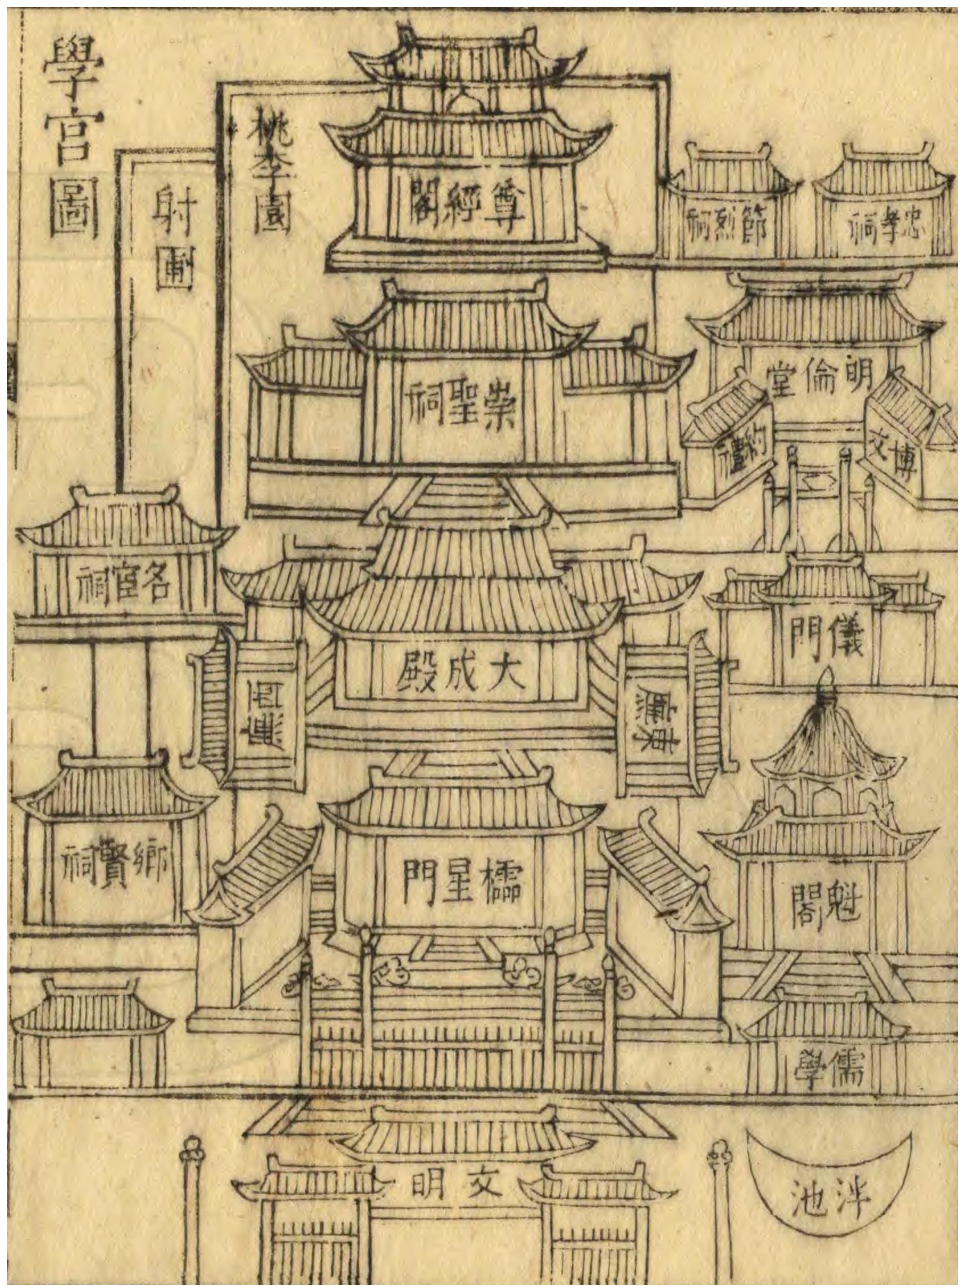 學宮圖
射圃
桃李園
尊經閣
忠孝祠
節烈祠
崇聖祠
明倫堂
博文
約禮
名宦祠
儀門
大成殿
東廡
西廡
鄉賢祠
櫺星門
魁閣
儒學
文明
泮池